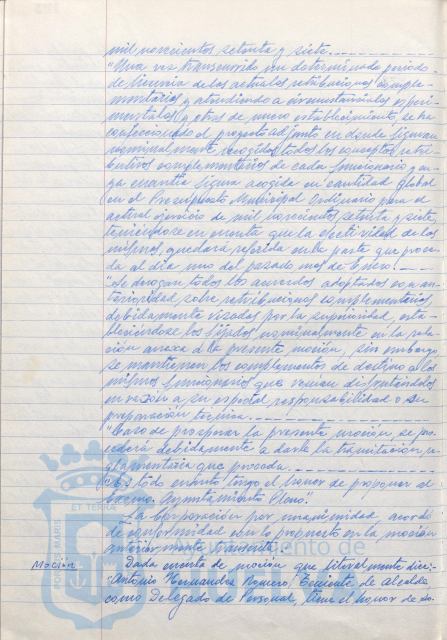 mil novecientos setenta y siete.
"Una vez transcurrido un determinado periodo
de licencia de los actuales retribuciones comple-
mentarios y atendiendo a circunstancias experi-
mentales y otras de nuevo establecimiento, se ha
confeccionado el proyecto adjunto en donde figuran
nominalmente recogidos todos los conceptos retri-
butivos complementarios de cada funcionario y cu-
ya cuantía figura acogida en cantidad global
en el Presupuesto Municipal Ordinario para el
actual ejercicio de mil novecientos setenta y siete
teniéndose en cuenta que la efectividad de los
mismos, quedará referida en la parte que proce-
da al día uno del pasado mes de Enero.
"Se derogan todos los acuerdos adoptados con an-
terioridad sobre retribuciones complementarias,
debidamente visados por la superioridad, esta-
bleciéndose los fijados nominalmente en la rela-
ción anexa a la presente moción, sin embargo
se mantienen los complementos de destino a los
mismos funcionarios que venian disfrutándolos
en razón a su especial responsabilidad o su
preparación técnica.
"Caso de prosperar la presente moción, se pro-
cederá debidamente a darle la tramitación re-
glamentaria que proceda.
"Es todo cuanto tengo el honor de proponer al
Excmo. Ayuntamiento Pleno".
La Corporación por unanimidad acordó
de conformidad con lo propuesto en la moción
anteriormente transcrita.
Moción Dada cuenta de moción que literalmente dice:
"Antonio Hernandez Romero, Teniente de Alcalde
como Delegado de Personal, tiene el honor de so-
PORTUS MARIS ET TERRAE
Ayuntamiento de